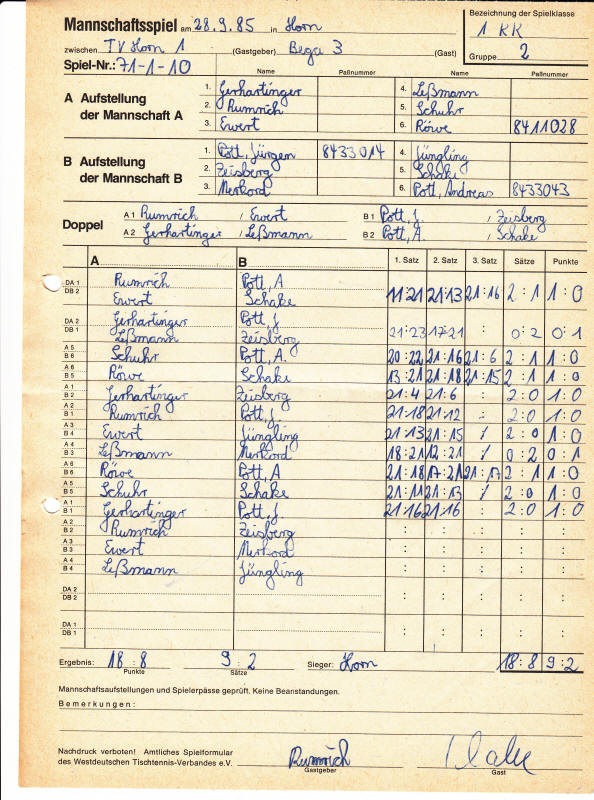 Mannschaftsspiel am 28.9.85 in Horn
Bezeichnung der Spielklasse
1 KK
zwischen TV Horn 1 (Gastgeber) Bega 3 (Gast)
Gruppe 2
Spiel-Nr.: 71-1-10
Name Paßnummer Name Paßnummer
A Aufstellung der Mannschaft A
1. Gerhartinger 4. Leßmann
2. Rumrich 5. Schuhr
3. Ewert 6. Röwe 8411028
B Aufstellung der Mannschaft B
1. Pott, Jürgen 8433014 4. Jüngling
2. Zeisberg 5. Schake
3. Merkord 6. Pott, Andreas 8433043
Doppel
A 1 Rumrich / Ewert B 1 Pott, J. / Zeisberg
A 2 Gerhartinger / Leßmann B 2 Pott, A. / Schake
A B 1. Satz 2. Satz 3. Satz Sätze Punkte
DA 1 Rumrich Pott, A
DB 2 Ewert Schake 11:21 21:13 21:16 2:1 1:0
DA 2 Gerhartinger Pott, J.
DB 1 Leßmann Zeisberg 21:23 17:21 : 0:2 0:1
A 5 B 6 Schuhr Pott, A. 20:22 21:16 21:6 2:1 1:0
A 6 B 5 Röwe Schake 13:21 21:18 21:15 2:1 1:0
A 1 B 2 Gerhartinger Zeisberg 21:4 21:6 : 2:0 1:0
A 2 B 1 Rumrich Pott, J. 21:18 21:12 : 2:0 1:0
A 3 B 4 Ewert Jüngling 21:13 21:15 / 2:0 1:0
A 4 B 3 Leßmann Merkord 18:21 12:21 / 0:2 0:1
A 6 B 6 Röwe Pott, A 21:18 17:21 21:17 2:1 1:0
A 5 B 5 Schuhr Schake 21:11 21:13 / 2:0 1:0
A 1 B 1 Gerhartinger Pott, J. 21:16 21:16 : 2:0 1:0
A 2 B 2 Rumrich Zeisberg : : : : :
A 3 B 3 Ewert Merkord : : : : :
A 4 B 4 Leßmann Jüngling : : : : :
DA 2 DB 2 : : : : :
DA 1 DB 1 : : : : :
Ergebnis: 18:8 Punkte 9:2 Sätze Sieger: Horn 18:8 9:2
Mannschaftsaufstellungen und Spielerpässe geprüft. Keine Beanstandungen.
Bemerkungen:
Nachdruck verboten! Amtliches Spielformular
des Westdeutschen Tischtennis-Verbandes e.V.
Rumrich
Gastgeber
Gast